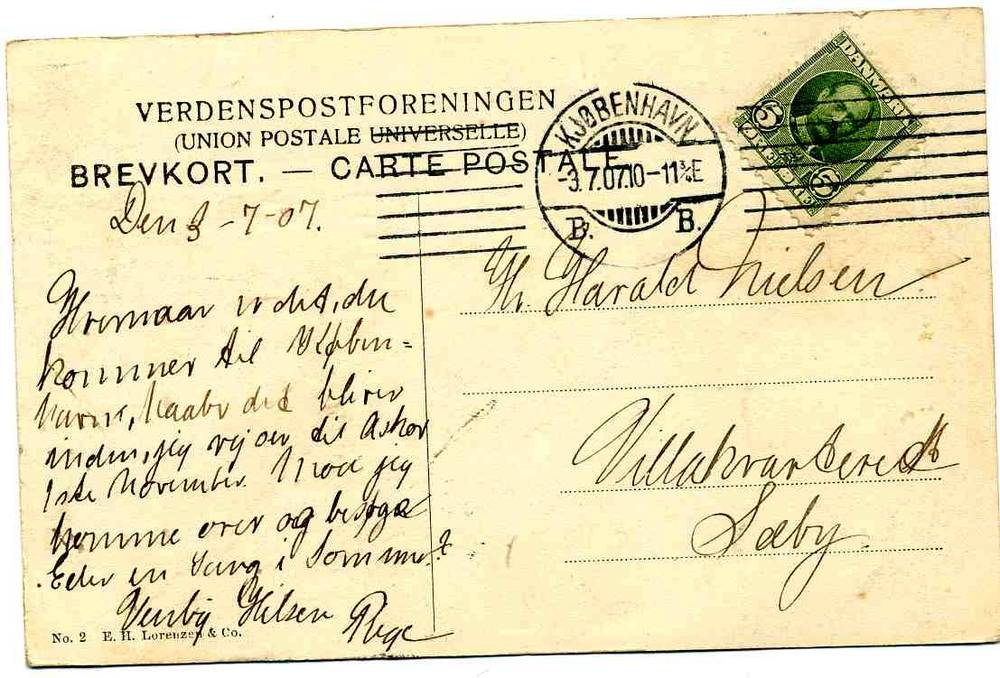 VERDENSPOSTFORENINGEN
(UNION POSTALE UNIVERSELLE)
BREVKORT. — CARTE POSTALE
KJØBENHAVN
3.7.07.10-11¾E
B. B.
DANMARK
5 5
Den 3-7-07.
Hvornaar er det, du
kommer til Kjøben=
havn, haaber det bliver
inden, jeg rejser til Askov
1ste November. Maa jeg
komme over og besøge
Eder en Gang i Sommer?
Venlig Hilsen
Hr. Harald Nielsen
Villakvarteret
Sæby.
No. 2 E. H. Lorenzen & Co.